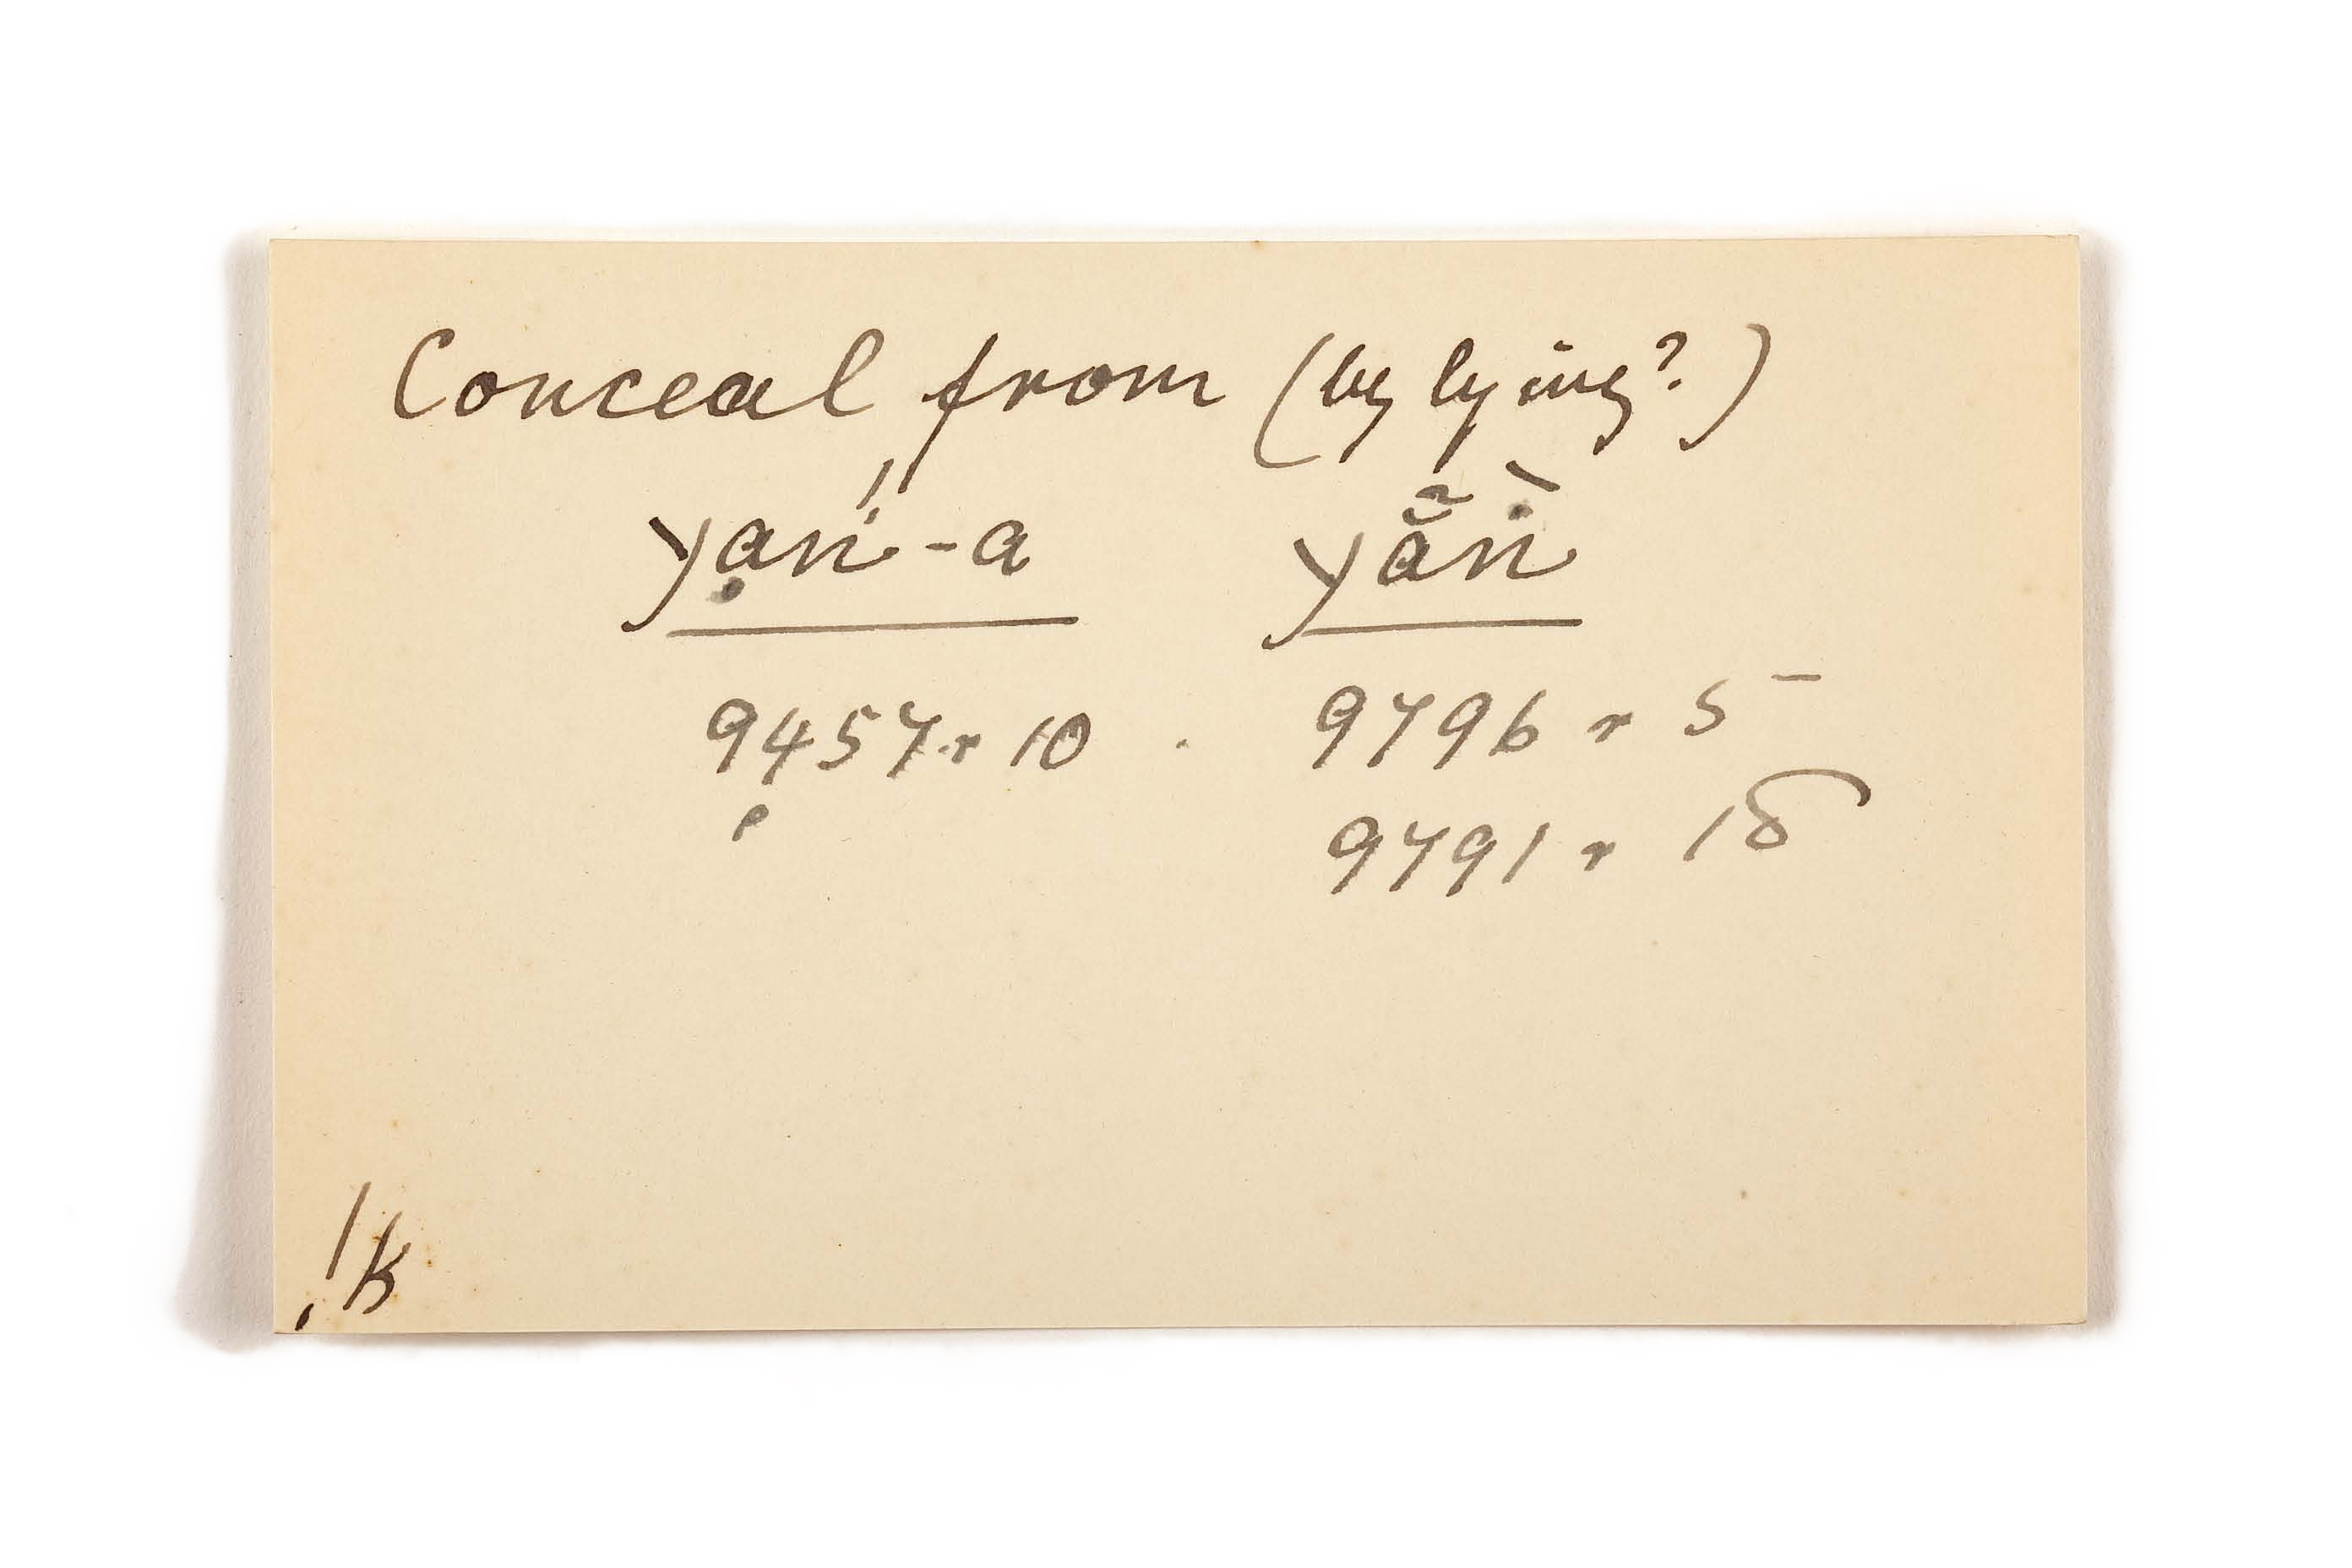 Conceal from (by lying?)
yạṅ́-a yã̆ṅ̀
9457 r 10 9796 r 5
9791 r 18
!k